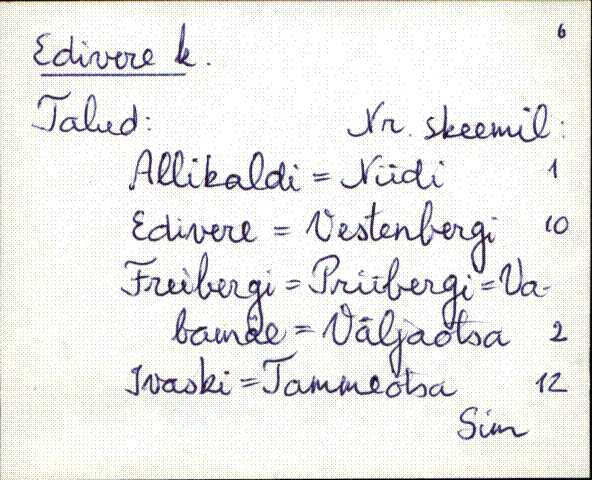 6
Edivere k.
Talud: Nr. skeemil:
Allikaldi = Niidi 1
Edivere = Vestenbergi 10
Freibergi = Priibergi = Va-
bamäe = Väljaotsa 2
Ivaski = Tammeotsa 12
Sim